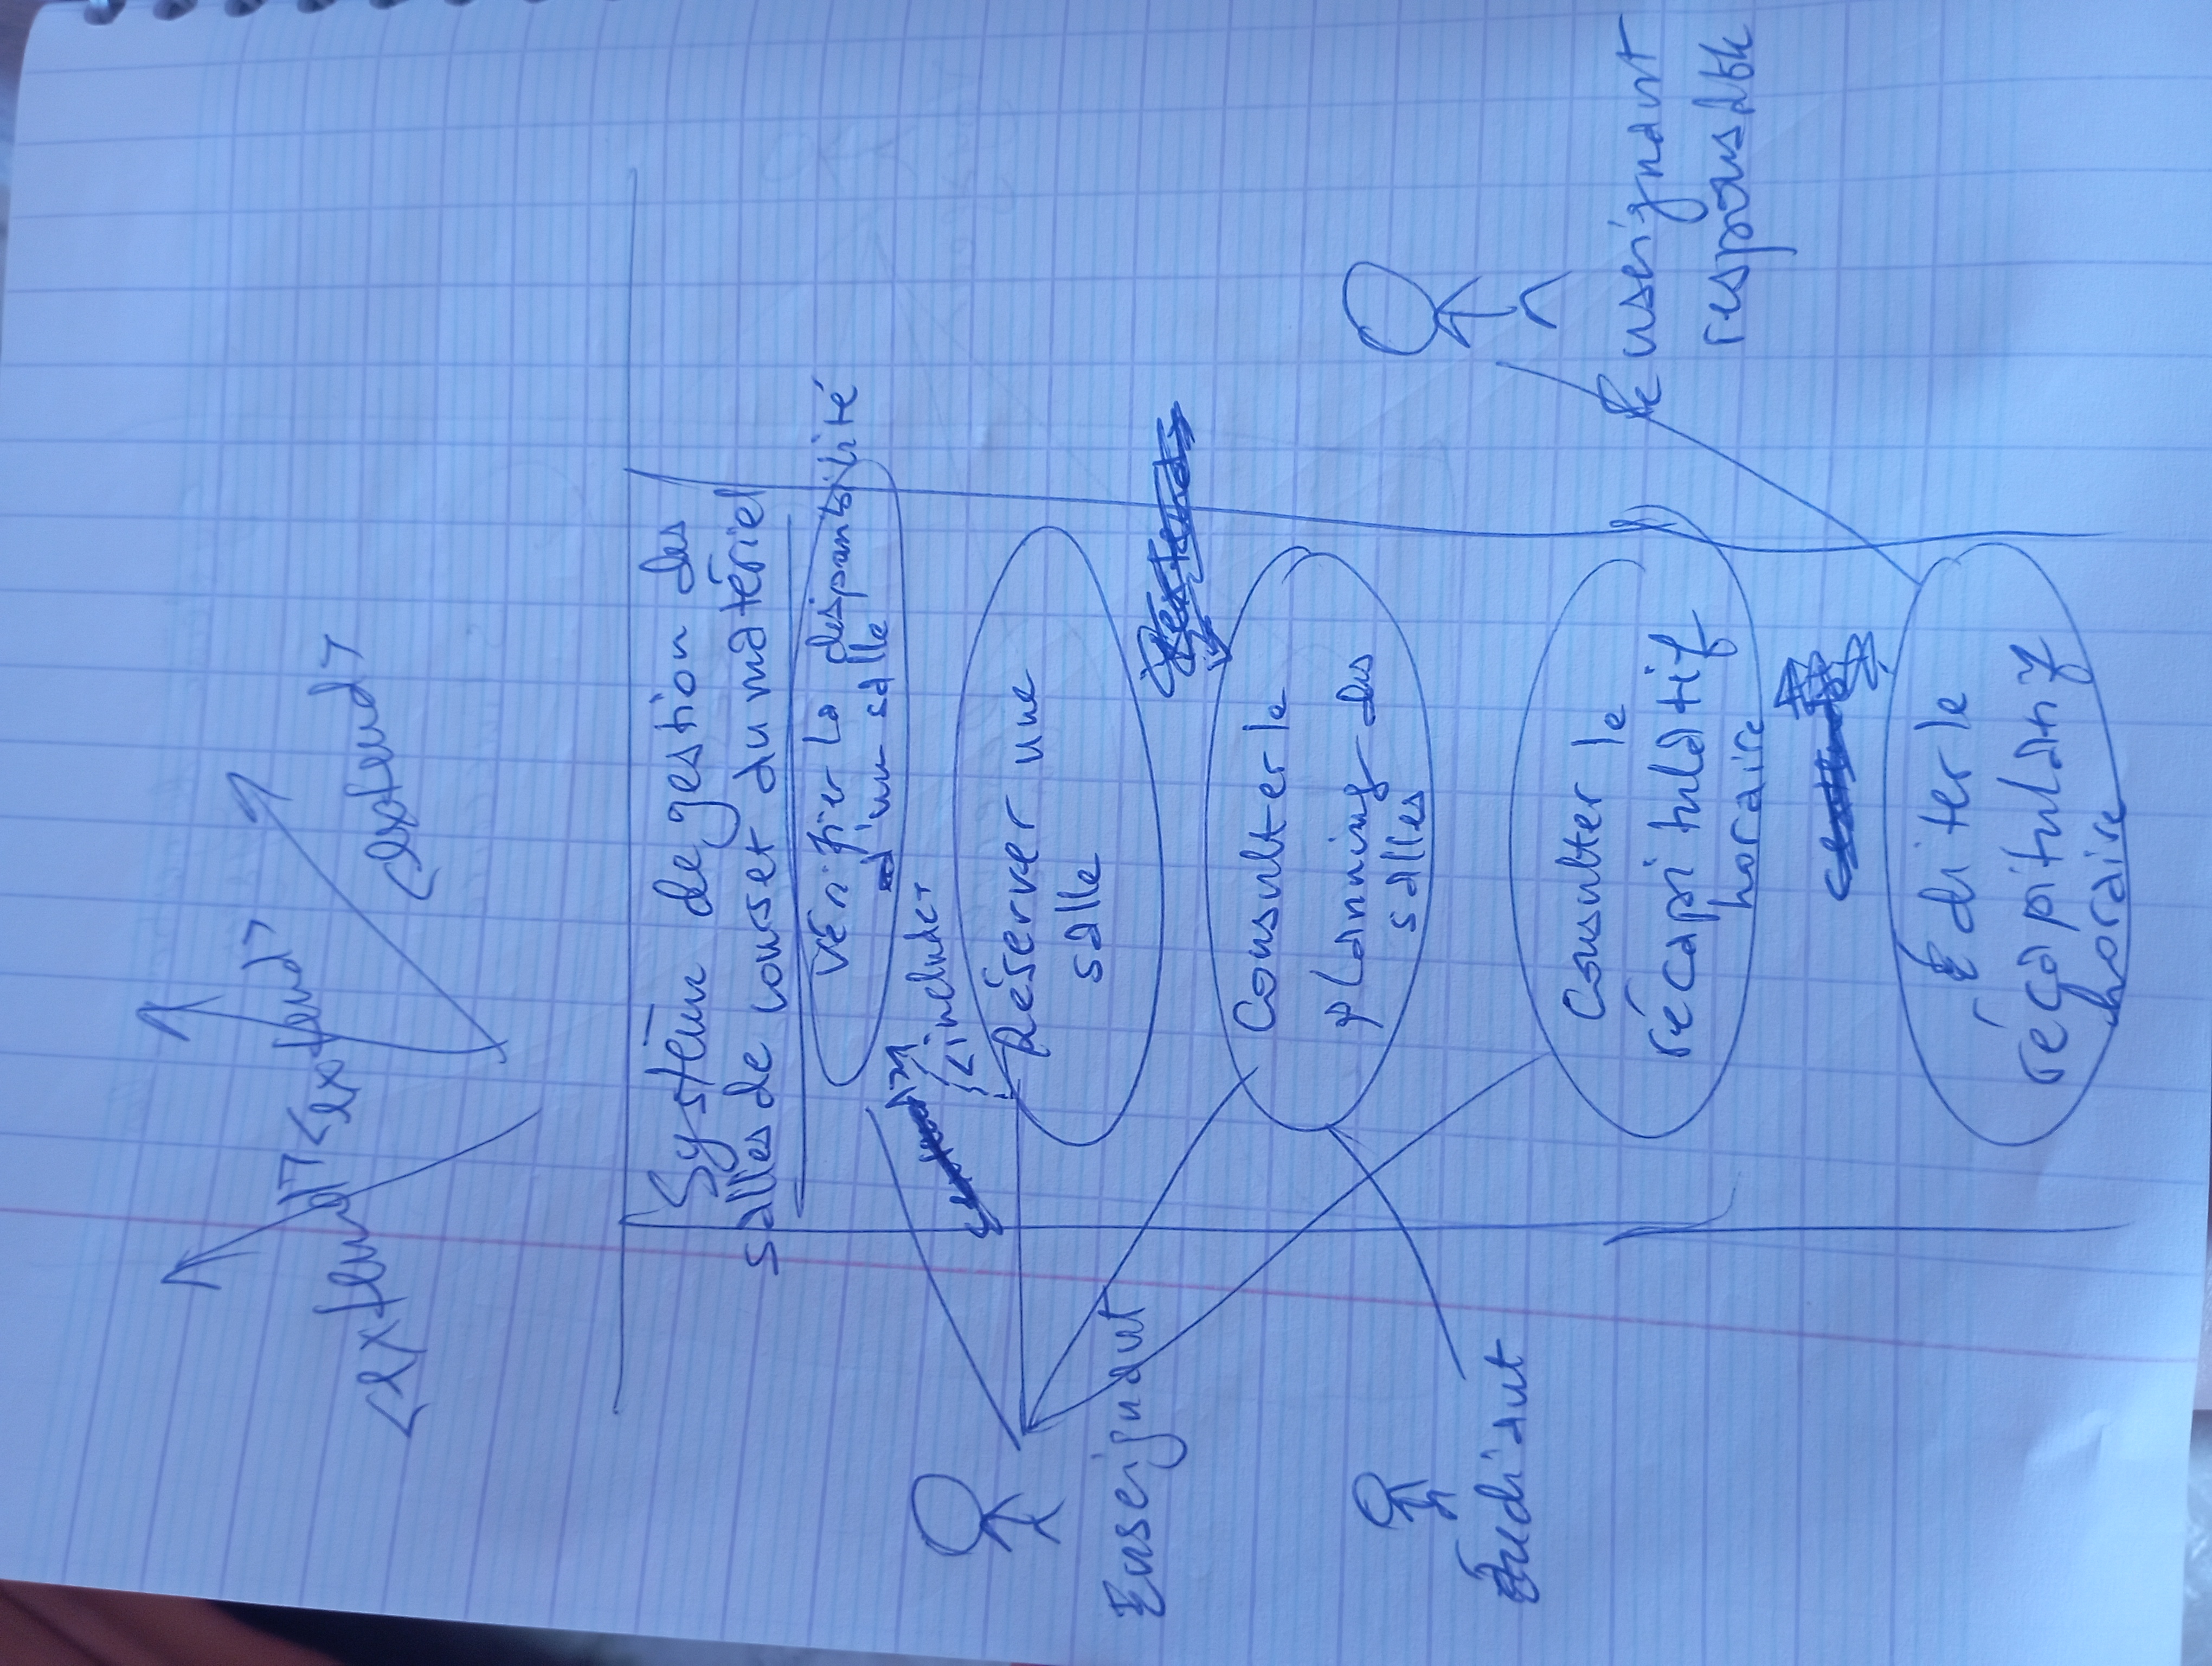 <extend> <extend>
<extend>
Système de gestion des
salles de cours et du matériel
Vérifier la disponibilité
d'une salle
<include>
Réserver une
salle
Enseignant
Consulter le
planning des
salles
Étudiant
Consulter le
récapitulatif
horaire
Enseignant
responsable
Éditer le
récapitulatif
horaire